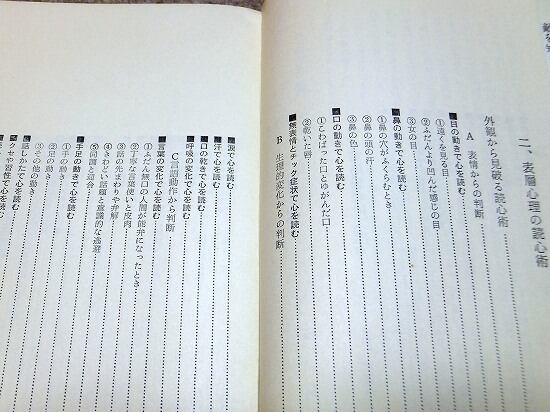 二、表層心理の読心術
外観から見破る読心術
A 表情からの判断
■目の動きで心を読む
①遠くを見る目
②ふだんより凹んだ感じの目
③女の目
■鼻の動きで心を読む
①鼻の穴がふくらむとき
②鼻の頭の汗
③鼻の色
■口の動きで心を読む
①こわばった口とゆがんだ口
②乾いた唇
■無表情とチック症状で心を読む
B 生理的変化からの判断
■涙で心を読む
■汗で心を読む
■口の乾きで心を読む
■呼吸の変化で心を読む
C 言語動作から判断
■言葉の変化で心を読む
①ふだん無口の人間が能弁になったとき
②丁寧な言葉使いと皮肉
③話の先まわりや弁解
④きわどい話題と意識的な逃避
⑤同調と迎合
■手足の動きで心を読む
①手の動き
②足の動き
③その他の動き
■話しかたで心を読む
■クセや習性で心を読む